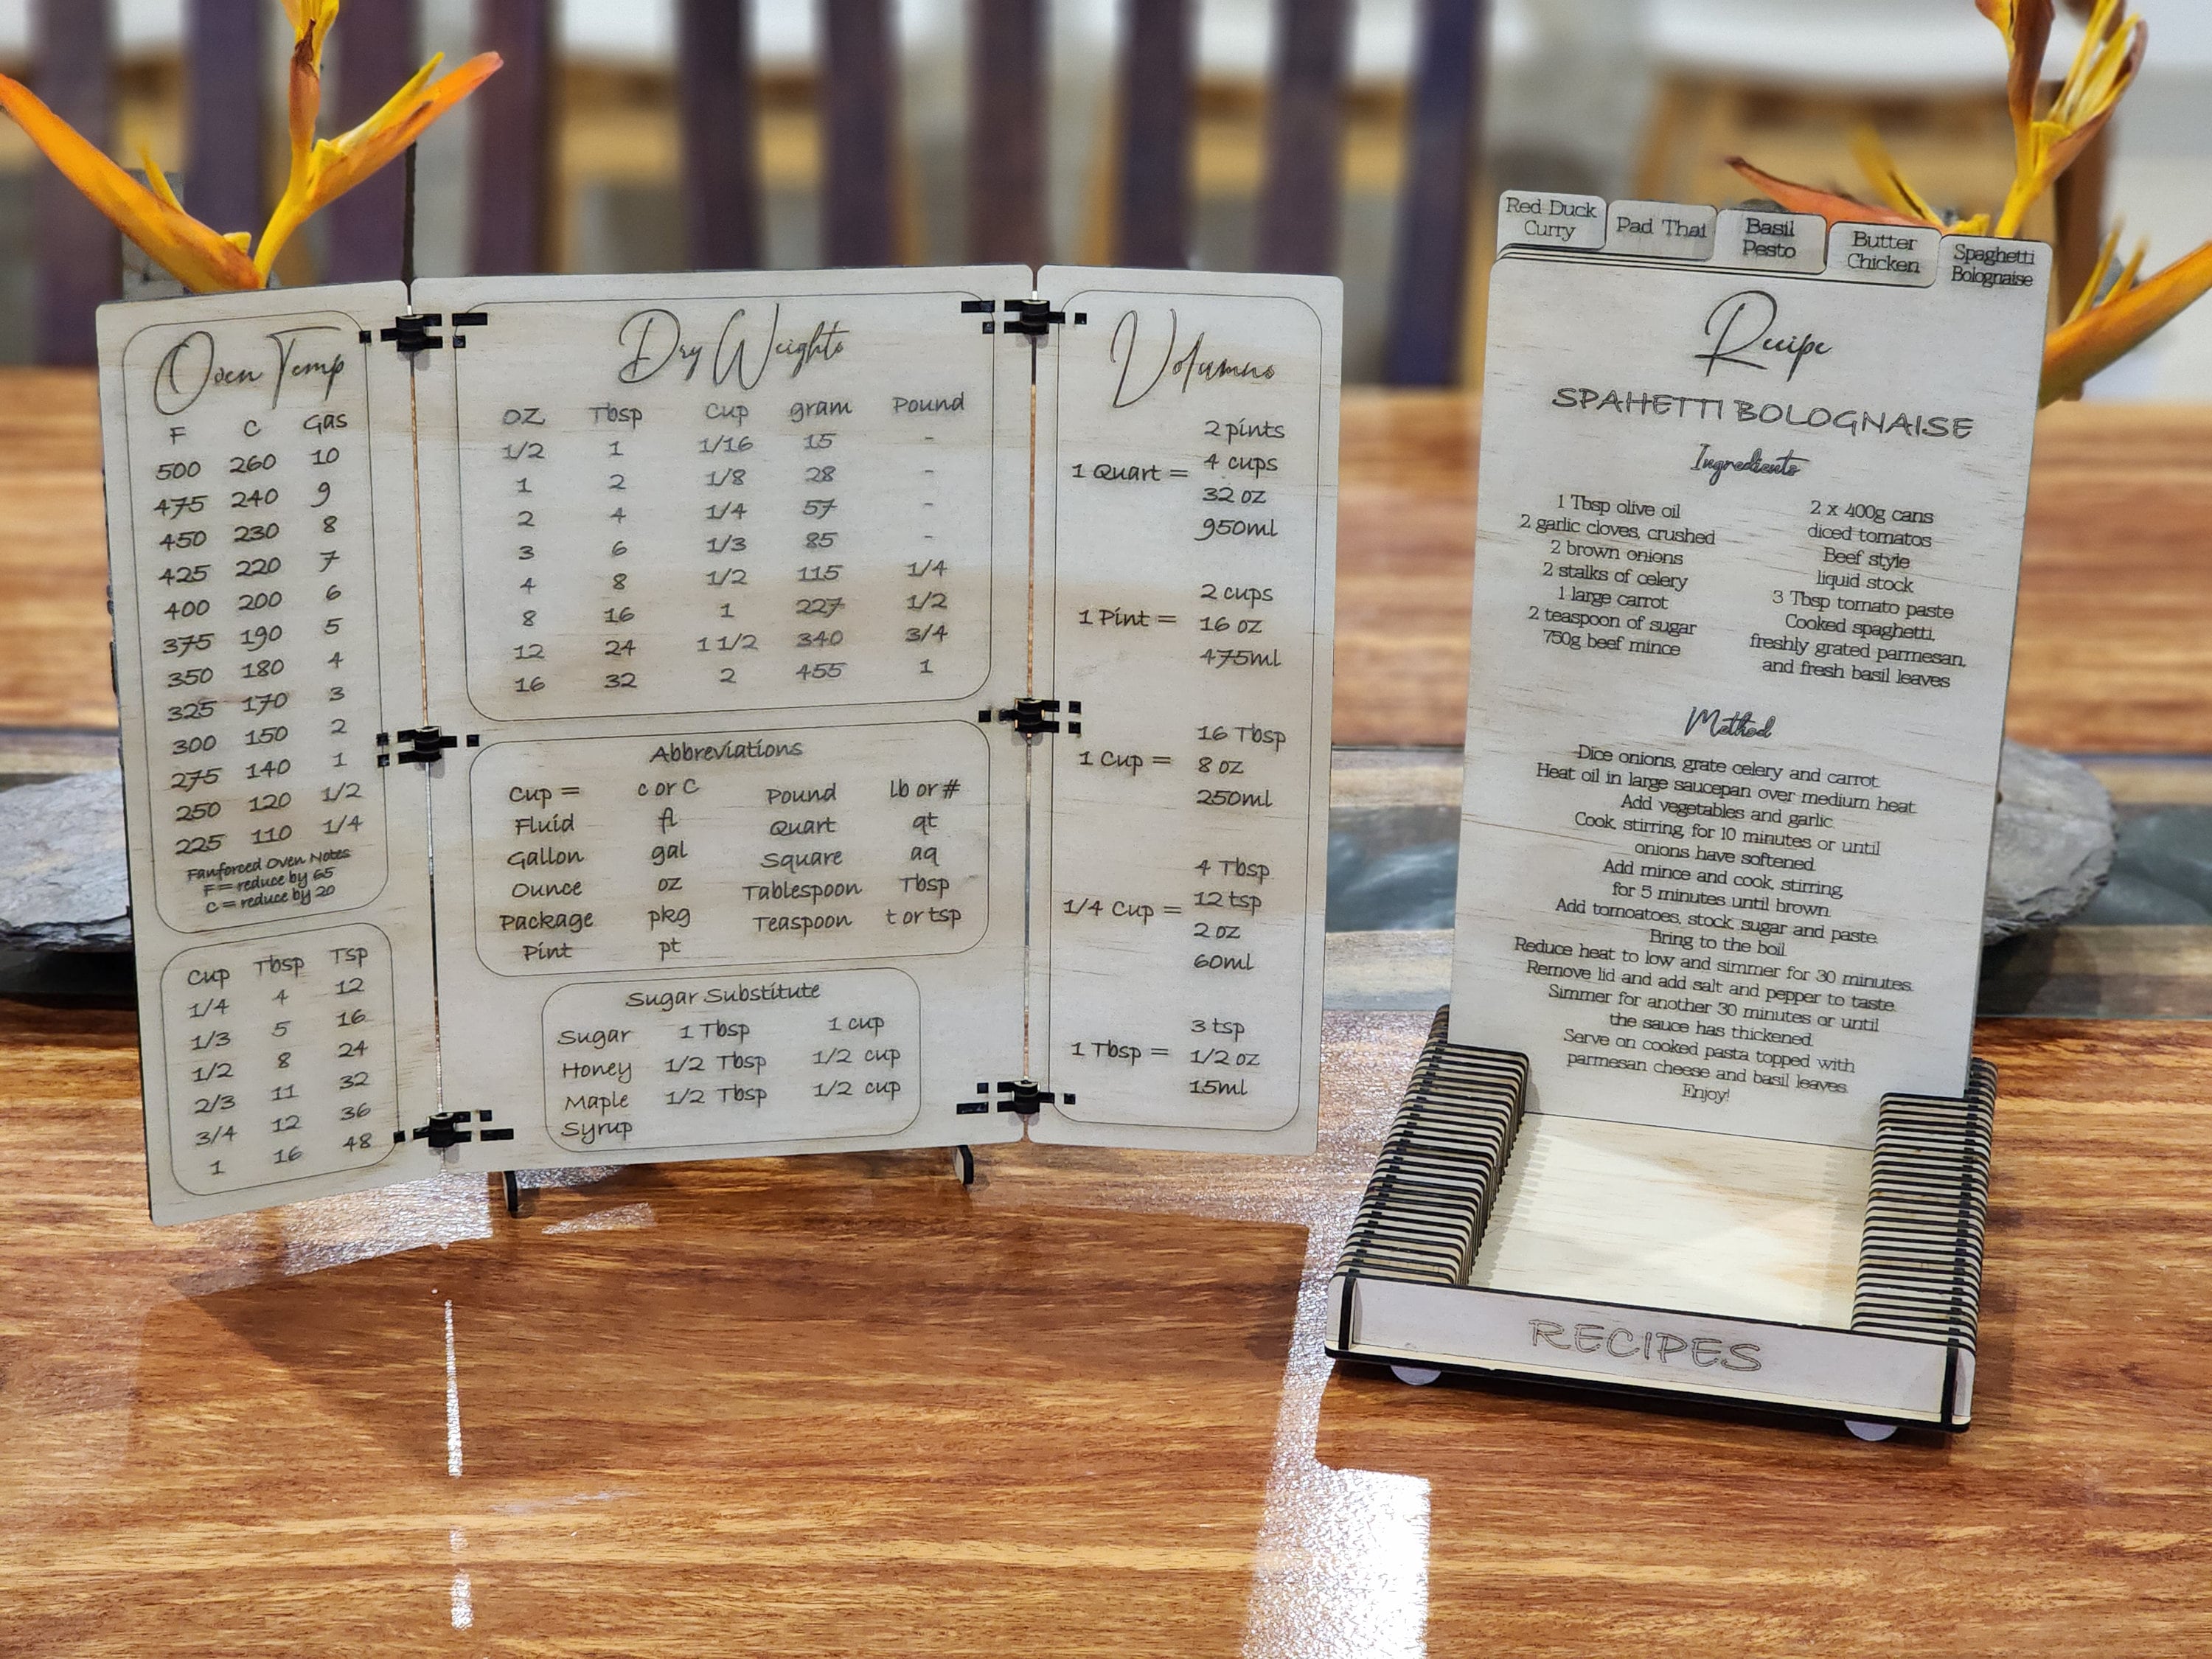 Oven Temp
F C Gas
500 260 10
475 240 9
450 230 8
425 220 7
400 200 6
375 190 5
350 180 4
325 170 3
300 150 2
275 140 1
250 120 1/2
225 110 1/4
Fanforced Oven Notes
F = reduce by 65
C = reduce by 20
Cup Tbsp Tsp
1/4 4 12
1/3 5 16
1/2 8 24
2/3 11 32
3/4 12 36
1 16 48
Dry Weights
OZ Tbsp Cup gram Pound
1/2 1 1/16 15 -
1 2 1/8 28 -
2 4 1/4 57 -
3 6 1/3 85 -
4 8 1/2 115 1/4
8 16 1 227 1/2
12 24 1 1/2 340 3/4
16 32 2 455 1
Abbreviations
Cup = c or C Pound lb or #
Fluid fl Quart qt
Gallon gal Square aq
Ounce oz Tablespoon Tbsp
Package pkg Teaspoon t or tsp
Pint pt
Sugar Substitute
Sugar 1 Tbsp 1 cup
Honey 1/2 Tbsp 1/2 cup
Maple 1/2 Tbsp 1/2 cup
Syrup
Volumns
2 pints
1 Quart = 4 cups
32 oz
950ml
2 cups
1 Pint = 16 oz
475ml
16 Tbsp
1 Cup = 8 oz
250ml
4 Tbsp
1/4 Cup = 12 tsp
2 oz
60ml
3 tsp
1 Tbsp = 1/2 oz
15ml
Red Duck
Curry
Pad Thai
Basil
Pesto
Butter
Chicken
Spaghetti
Bolognaise
Recipe
SPAHETTI BOLOGNAISE
Ingredients
1 Tbsp olive oil
2 garlic cloves, crushed
2 brown onions
2 stalks of celery
1 large carrot
2 teaspoon of sugar
750g beef mince
2 x 400g cans
diced tomatos
Beef style
liquid stock
3 Tbsp tomato paste
Cooked spaghetti,
freshly grated parmesan,
and fresh basil leaves
Method
Dice onions, grate celery and carrot.
Heat oil in large saucepan over medium heat.
Add vegetables and garlic.
Cook, stirring, for 10 minutes or until
onions have softened.
Add mince and cook, stirring,
for 5 minutes until brown.
Add tomcatoes, stock, sugar and paste.
Bring to the boil.
Reduce heat to low and simmer for 30 minutes.
Remove lid and add salt and pepper to taste.
Simmer for another 30 minutes or until
the sauce has thickened.
Serve on cooked pasta topped with
parmesan cheese and basil leaves.
Enjoy!
RECIPES